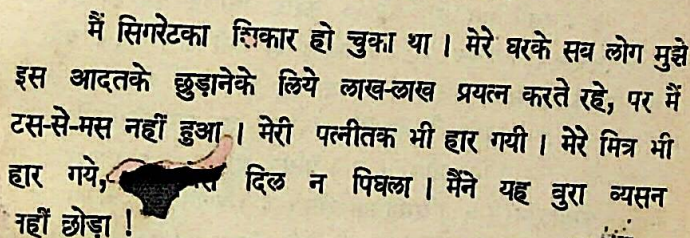 मैं सिगरेटका शिकार हो चुका था । मेरे घरके सब लोग मुझे
इस आदतके छुड़ानेके लिये लाख-लाख प्रयत्न करते रहे, पर मैं
टस-से-मस नहीं हुआ । मेरी पत्नीतक भी हार गयी । मेरे मित्र भी
हार गये, दिल न पिघला । मैंने यह बुरा व्यसन
नहीं छोड़ा !